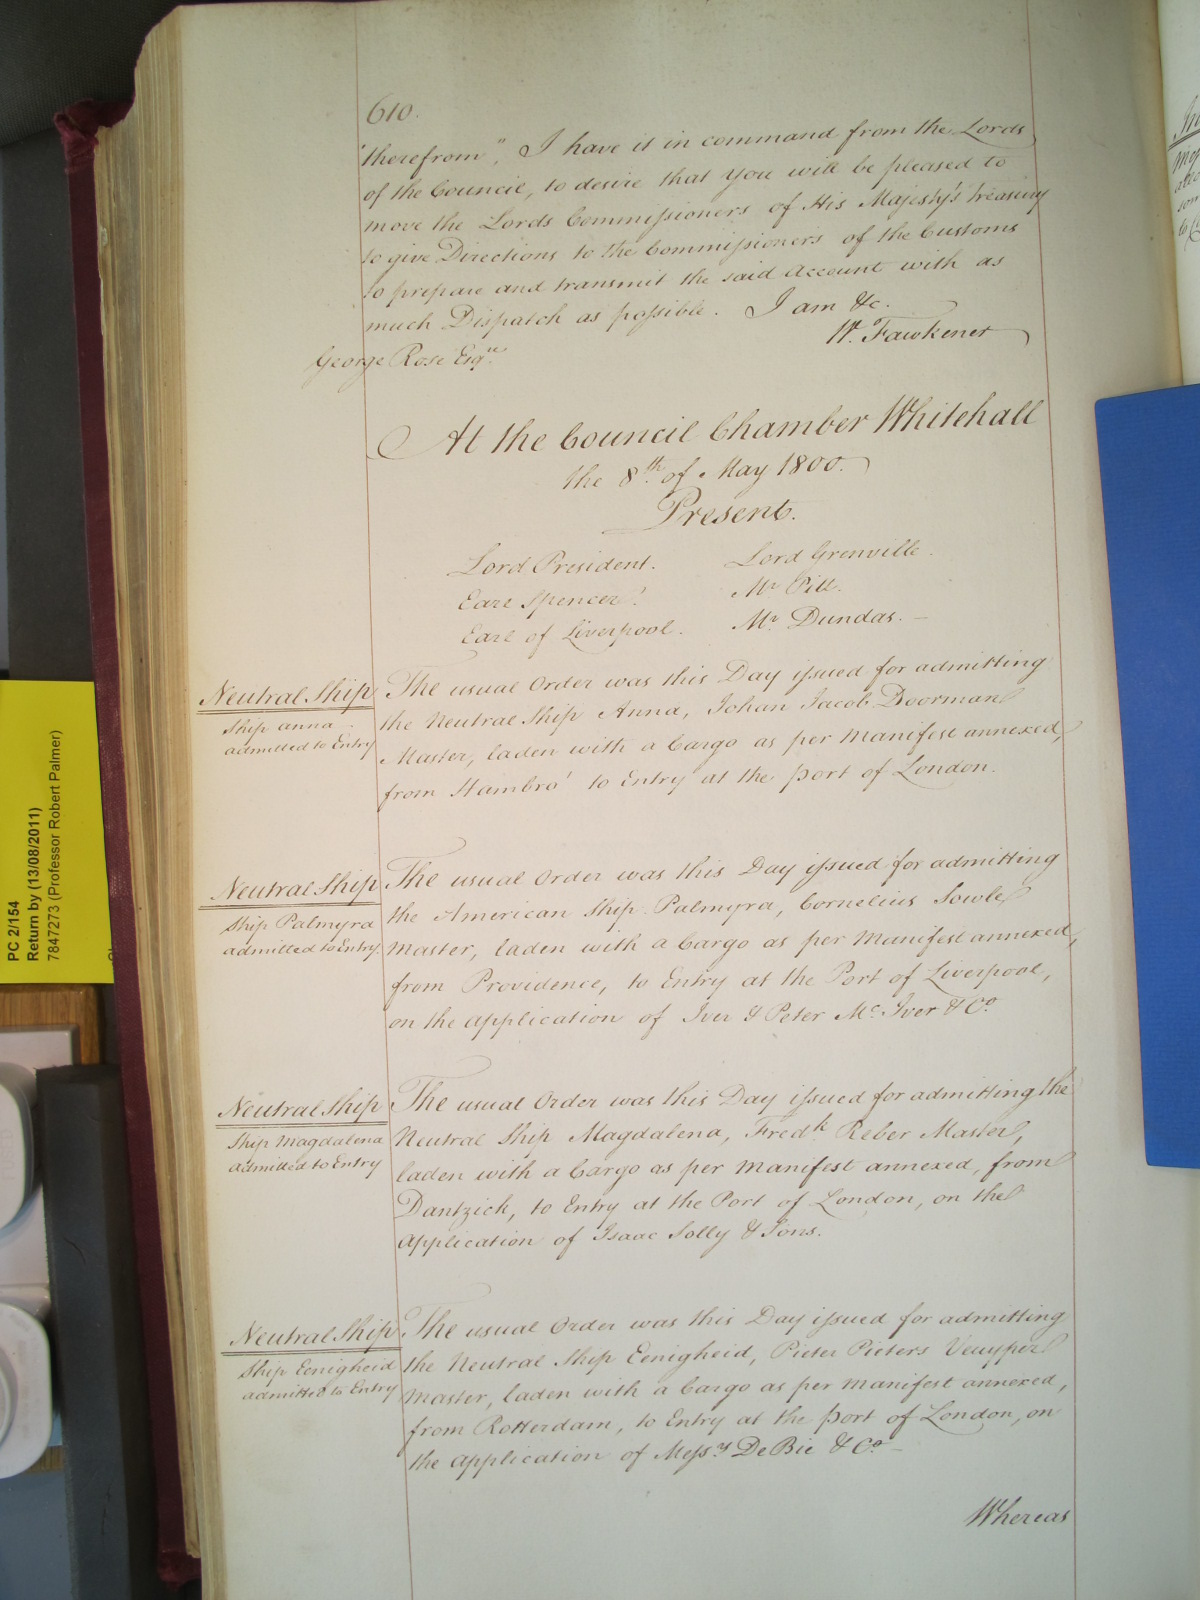 610.
"therefrom". I have it in command from the Lords
of the Council, to desire that You will be pleased to
move the Lords Commissioners of His Majesty's Treasury
to give Directions to the Commissioners of the Customs
to prepare and transmit the said Account with as
much Dispatch as possible. I am &c.
W. Fawkener
George Rose Esqre.
At the Council Chamber Whitehall
the 8th. of May 1800.
Present.
Lord President. Lord Grenville.
Earl Spencer. Mr. Pitt.
Earl of Liverpool. Mr. Dundas.
Neutral Ship
Ship Anna
admitted to Entry
The usual Order was this Day issued for admitting
the Neutral Ship Anna, Johan Jacob Doorman
Master, laden with a Cargo as per Manifest annexed,
from Hambro' to Entry at the port of London.
Neutral Ship
Ship Palmyra
admitted to Entry.
The usual Order was this Day issued for admitting
the American Ship Palmyra, Cornelius Sowle
Master, laden with a Cargo as per Manifest annexed,
from Providence, to Entry at the Port of Liverpool,
on the application of Iver & Peter Mc. Iver & Co.
Neutral Ship
Ship Magdalena
admitted to Entry
The usual Order was this Day issued for admitting the
Neutral Ship Magdalena, Fredk. Reber Master,
laden with a Cargo as per Manifest annexed, from
Dantzick, to Entry at the Port of London, on the
application of Isaac Solly & Sons.
Neutral Ship
Ship Eenigheid
admitted to Entry
The usual Order was this Day issued for admitting
the Neutral Ship Eenigheid, Pieter Pieters
Master, laden with a Cargo as per Manifest annexed,
from Rotterdam, to Entry at the port of London, on
the application of Messrs. De Bie & Co.
Whereas
PC 2/154
Return by (13/08/2011)
7847273 (Professor Robert Palmer)